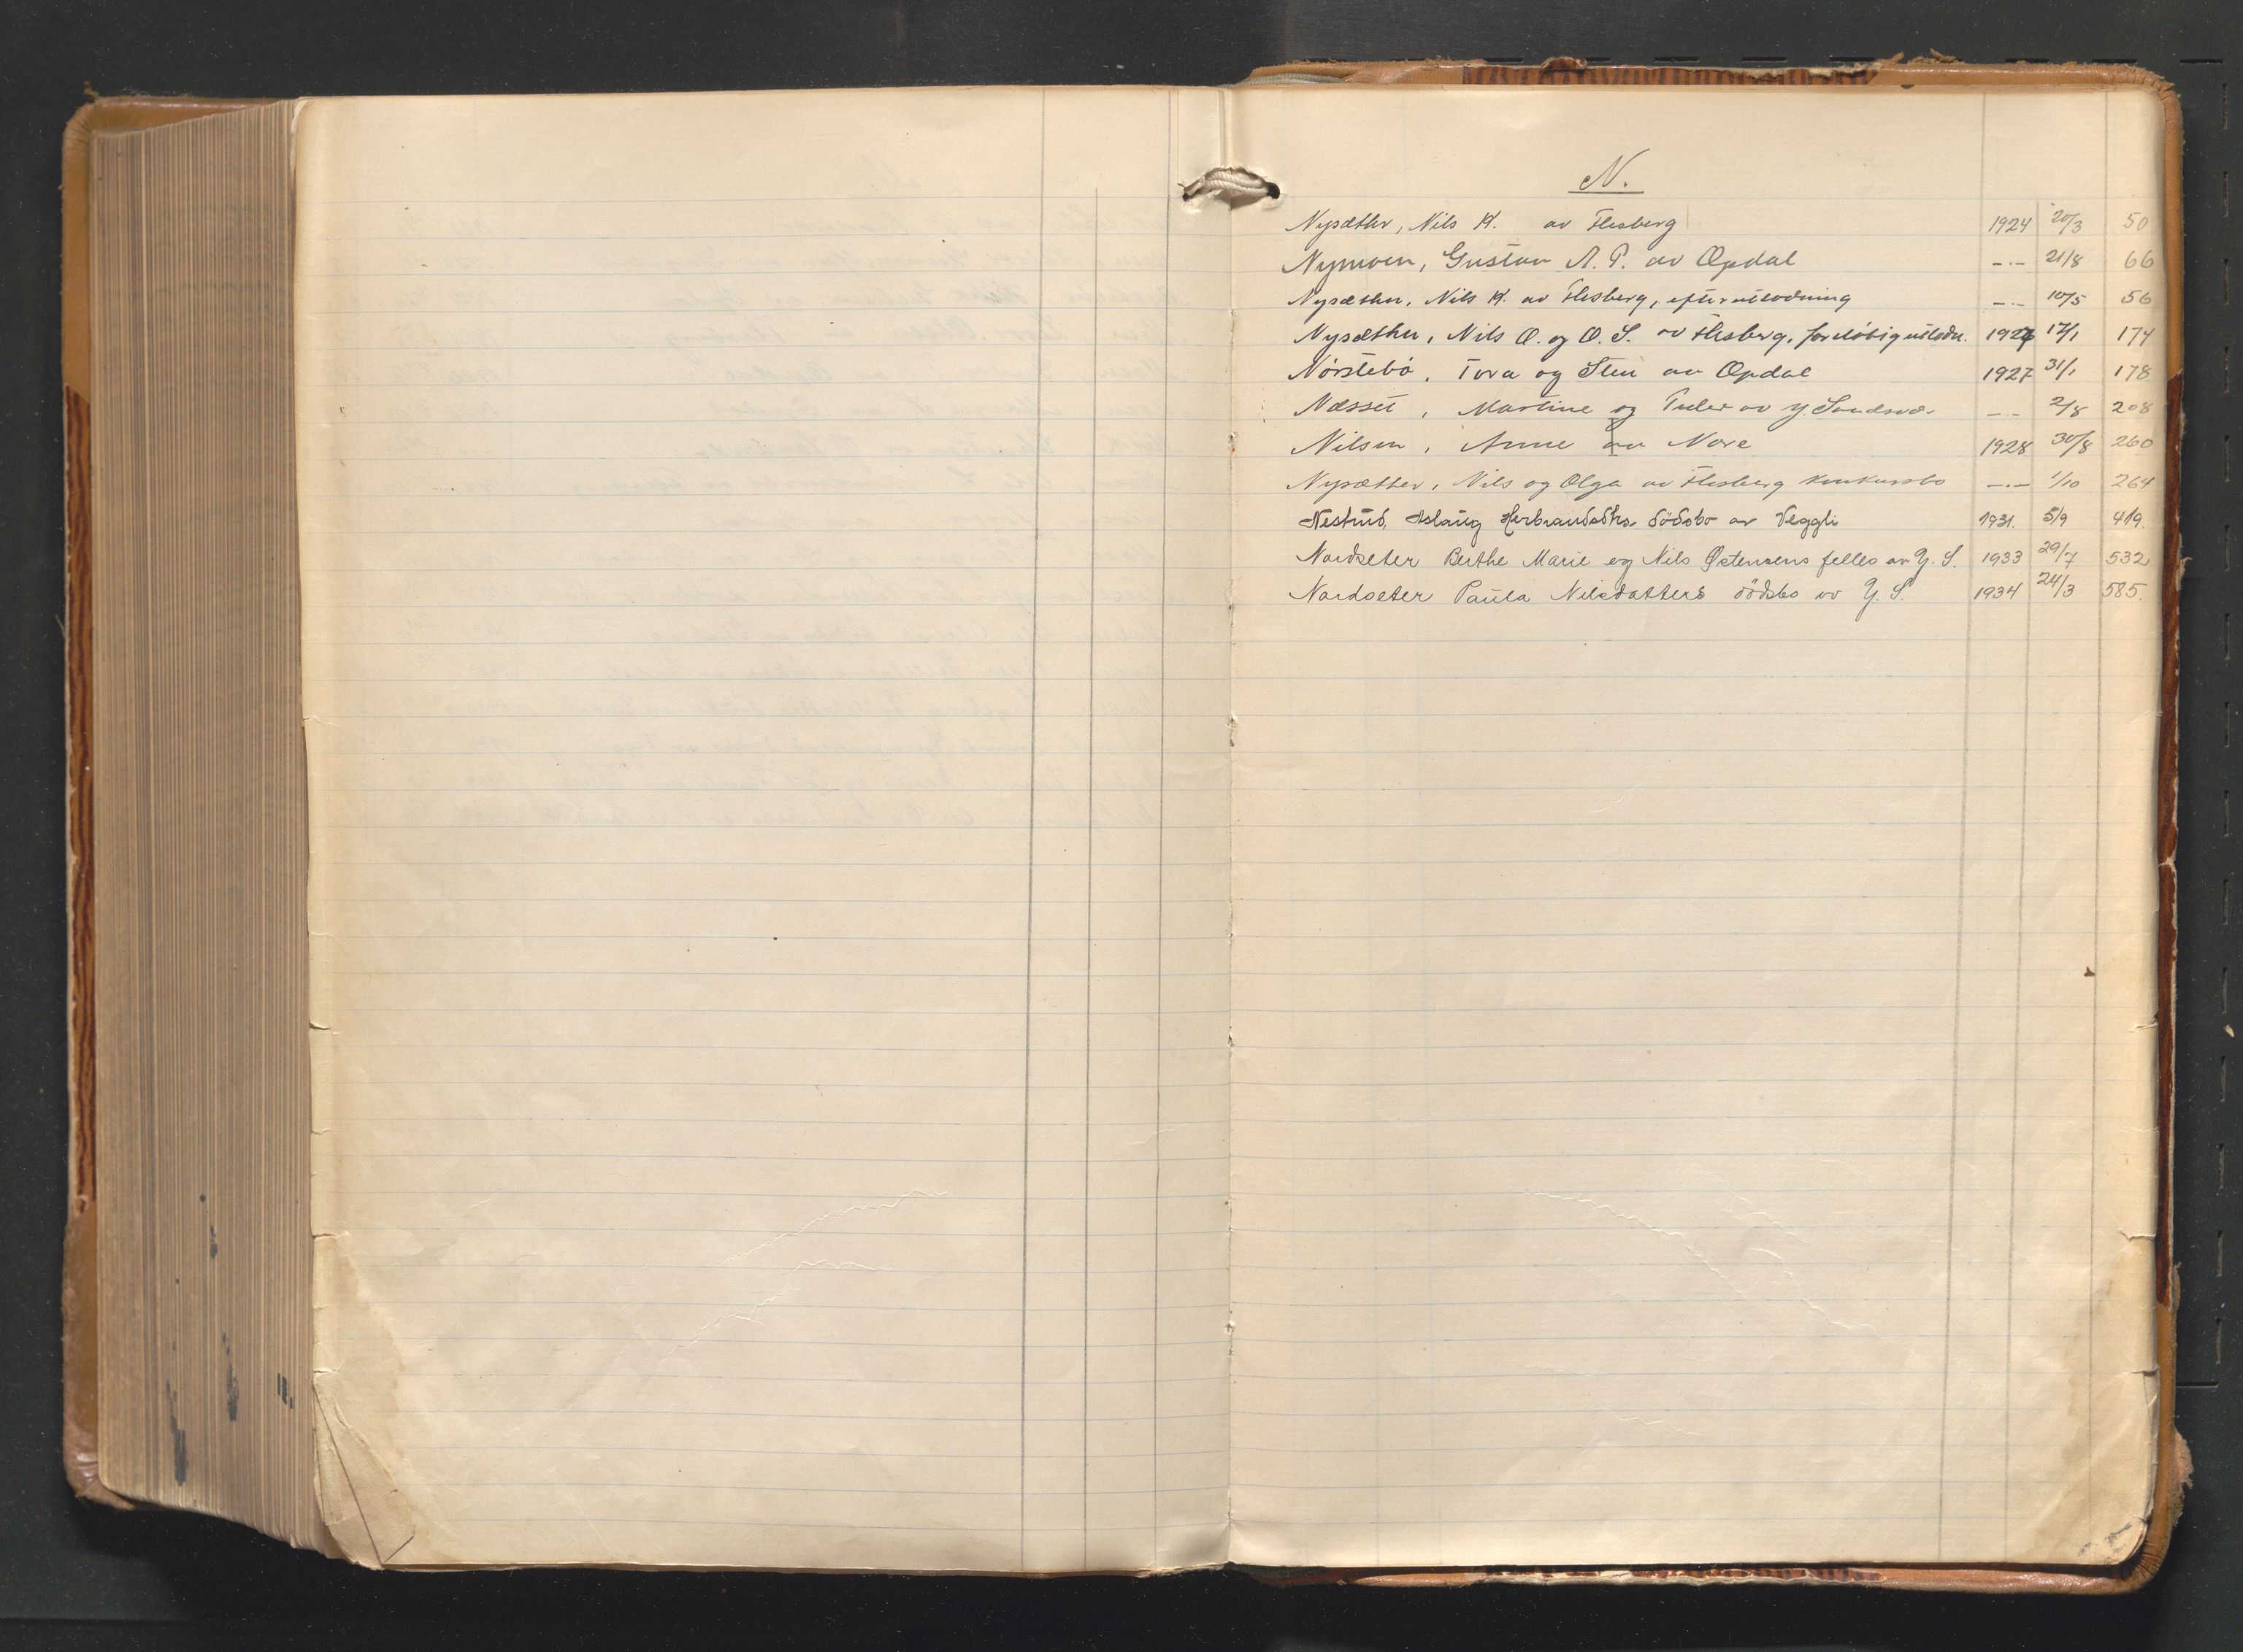 N.
Nysæther, Nils K. av Flesberg 1924 20/3 50
Nymoen, Gustav A. P. av Opdal -.- 21/8 66
Nysæther, Nils K. av Flesberg, efterutlodning -.- 10/5 56
Nysæther, Nils O. og O. S. av Flesberg, foreløbig utlodn. 1927 17/1 174
Nørstebø, Tora og Sten av Opdal 1927 31/1 178
Næsset, Martine og Peder av Y. Sandsvær -.- 2/8 208
Nilsen, Anne av Nore 1928 30/8 260
Nysæther, Nils og Olga av Flesberg konkursbo -.- 1/10 264
Nestrud, Aslaug Herbrandsdtrs dödsbo av Veggli 1931. 5/9 419.
Nordseter Berthe Marie og Nils Østensens felles av Y. S. 1933 29/7 532
Nordseter Paula Nilsdatters dödsbo av Y. S. 1934 24/3 585.